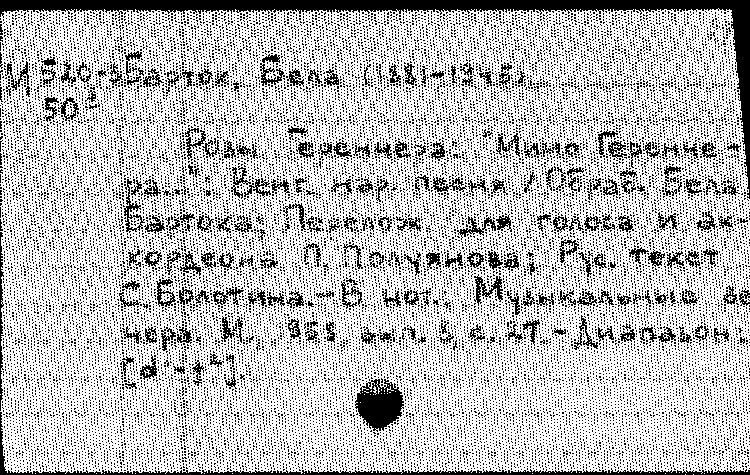 М 520-3 Барток, Бела (1881-1945).
50³
Розы Геренчера: "Мимо Геренче-
ра...": Венг. нар. песня / Обраб. Бела
Бартока; Перелож. для голоса и ак-
кордеона П. Полуянова; Рус. текст
С. Болотина. - В нот.: Музыкальные ве
чера. М., вып. 3, с. 27. - Диапазон:
[d¹-f²].